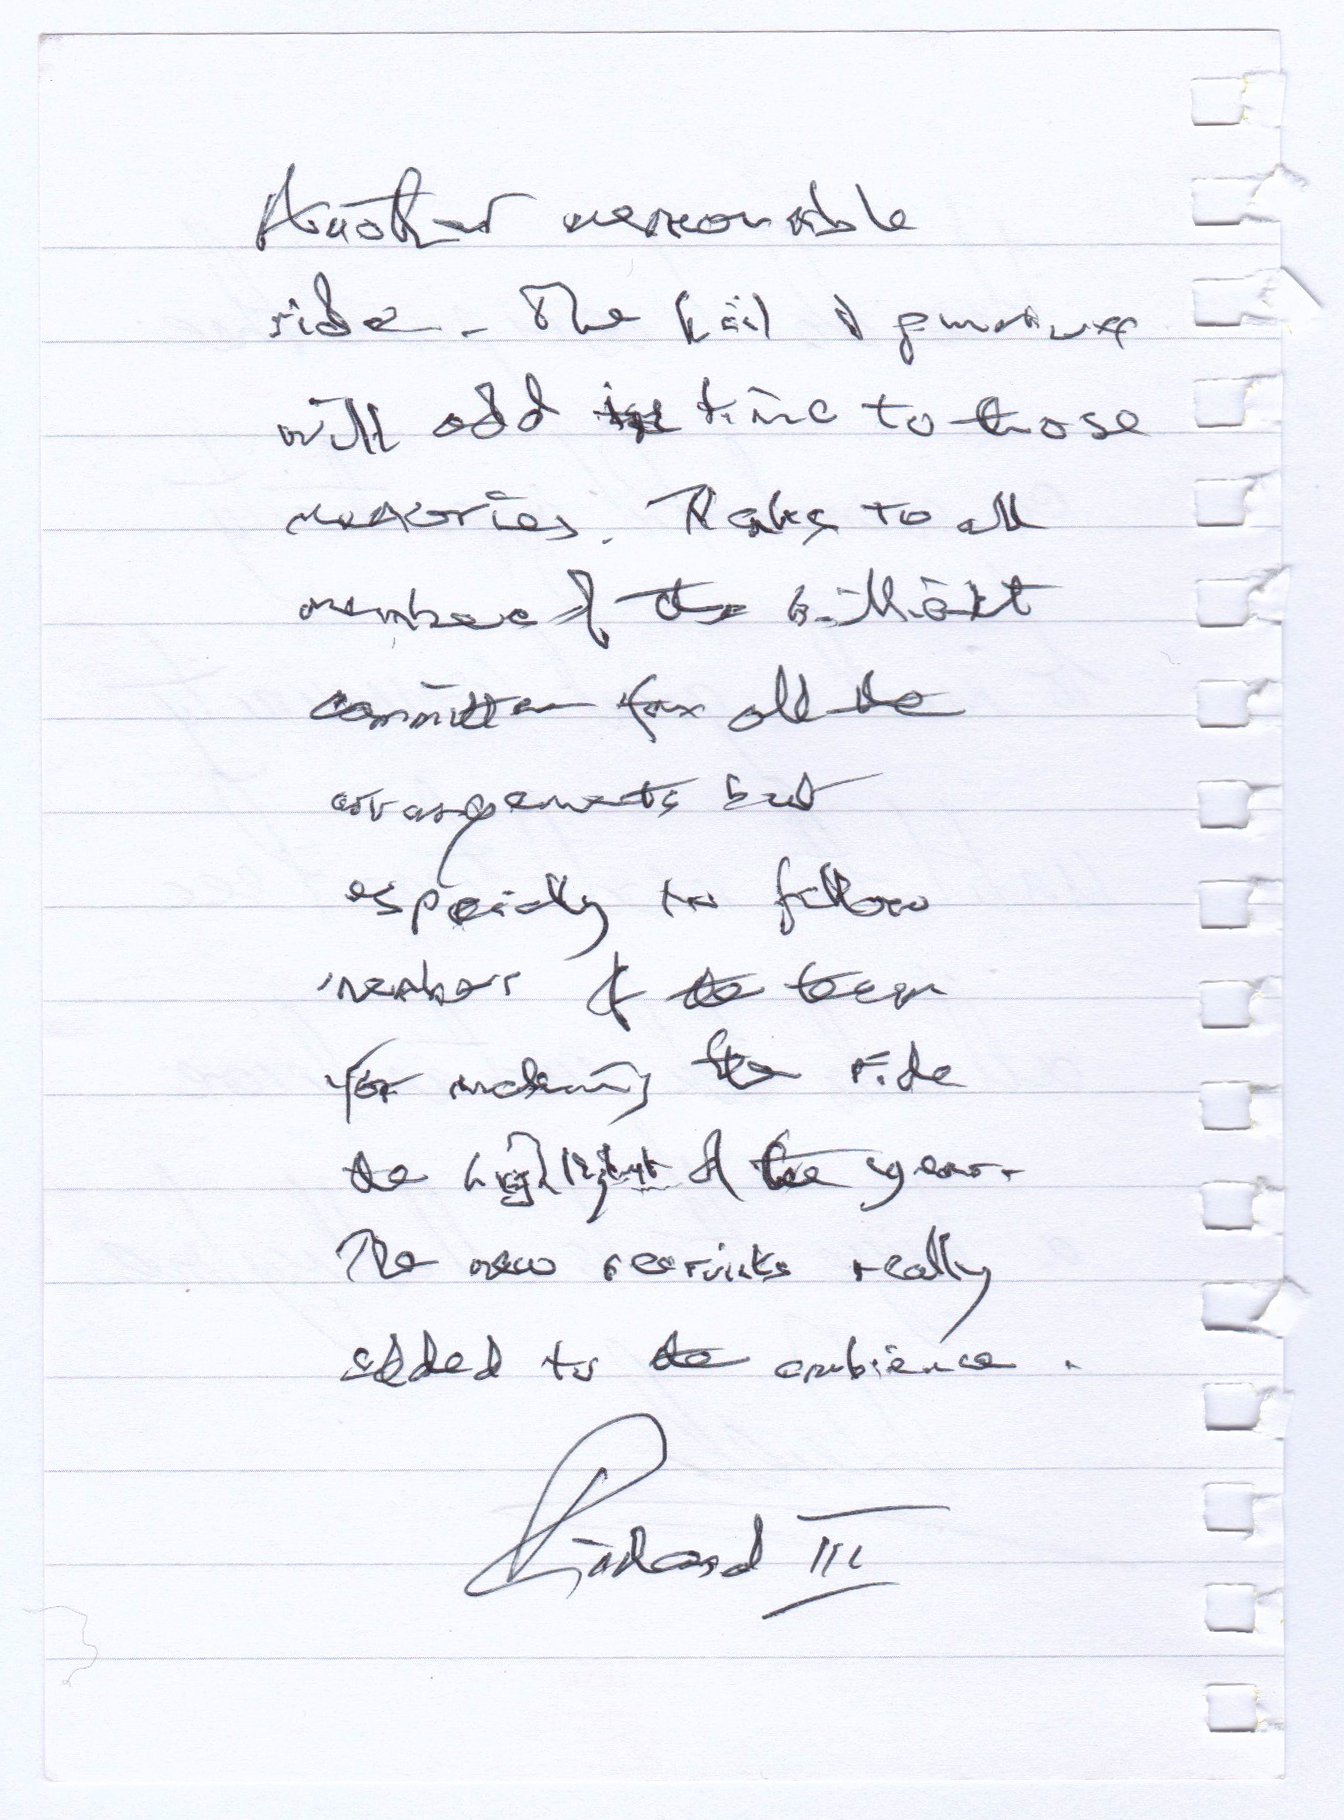 Another memorable
ride. The hail & punctures
will add in time to those
memories. Thanks to all
members of the brilliant
committee for all the
arrangements but
especially to fellow
members of the team
for making the ride
the highlight of the year.
The new recruits really
added to the ambience.
Richard III